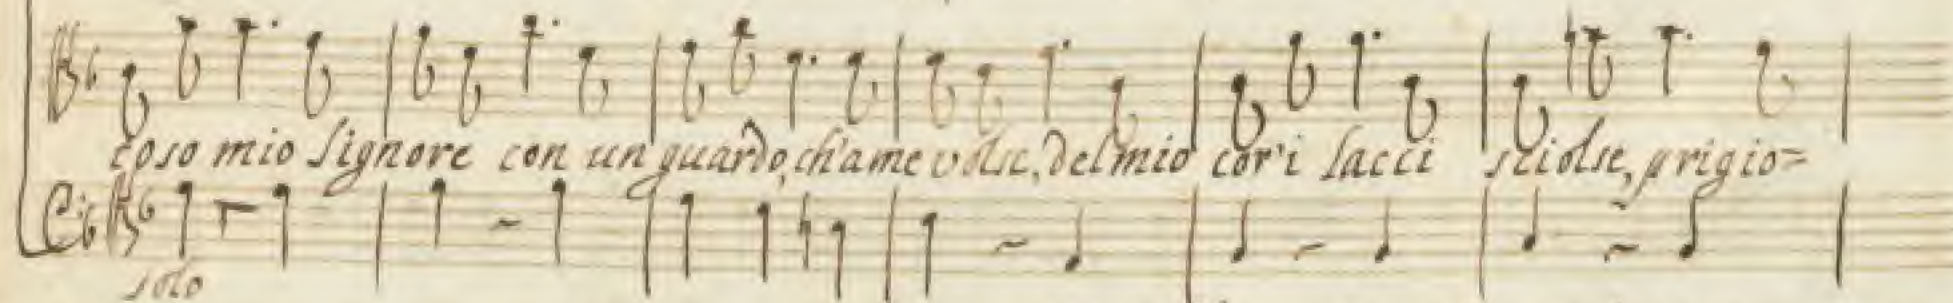 coso mio Signore con un guardo, ch'a me volse, del mio cor'i lacci sciolse, prigio=
solo